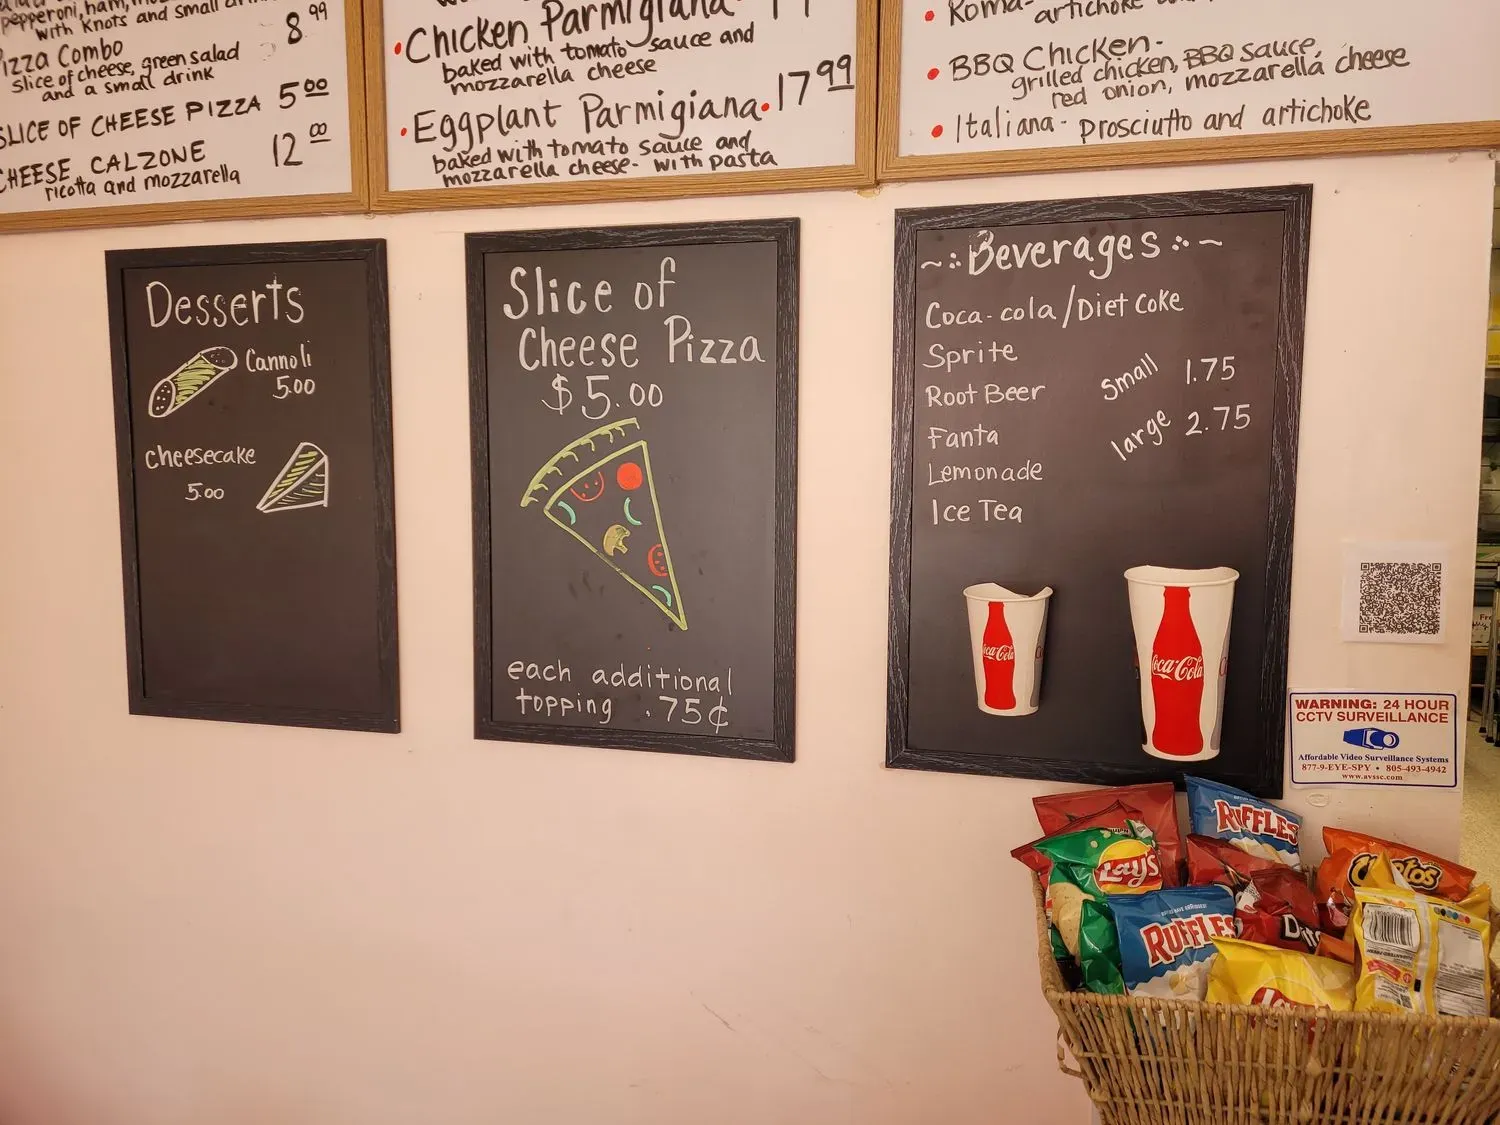 pepperoni, ham,
with knots and small drink
8.99
Pizza Combo
slice of cheese, green salad
and a small drink
SLICE OF CHEESE PIZZA 5.00
CHEESE CALZONE 12.00
ricotta and mozzarella
• Chicken Parmigiana
baked with tomato sauce and
mozzarella cheese
• Eggplant Parmigiana. 17.99
baked with tomato sauce and
mozzarella cheese- with pasta
• Roma-
artichoke
• BBQ Chicken-
grilled chicken, BBQ sauce,
red onion, mozzarella cheese
• Italiana- prosciutto and artichoke
Desserts
Cannoli
5.00
cheesecake
5.00
Slice of
Cheese Pizza
$5.00
each additional
topping .75¢
~:Beverages:~
Coca-cola/Diet coke
Sprite
Root Beer
Fanta
Lemonade
Ice Tea
Small 1.75
large 2.75
Coca-Cola
Coca-Cola
WARNING: 24 HOUR
CCTV SURVEILLANCE
Affordable Video Surveillance Systems
877-9-EYE-SPY • 805-493-4942
www.avssc.com
RUFFLES
Lay's
Cheetos
RUFFLES
Doritos
Lay's